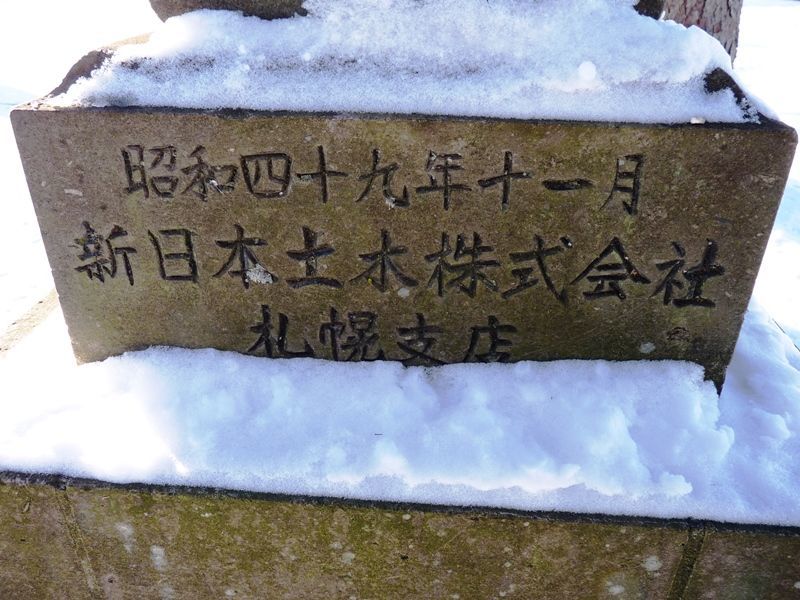 昭和四十九年十一月
新日本土木株式会社
札幌支店